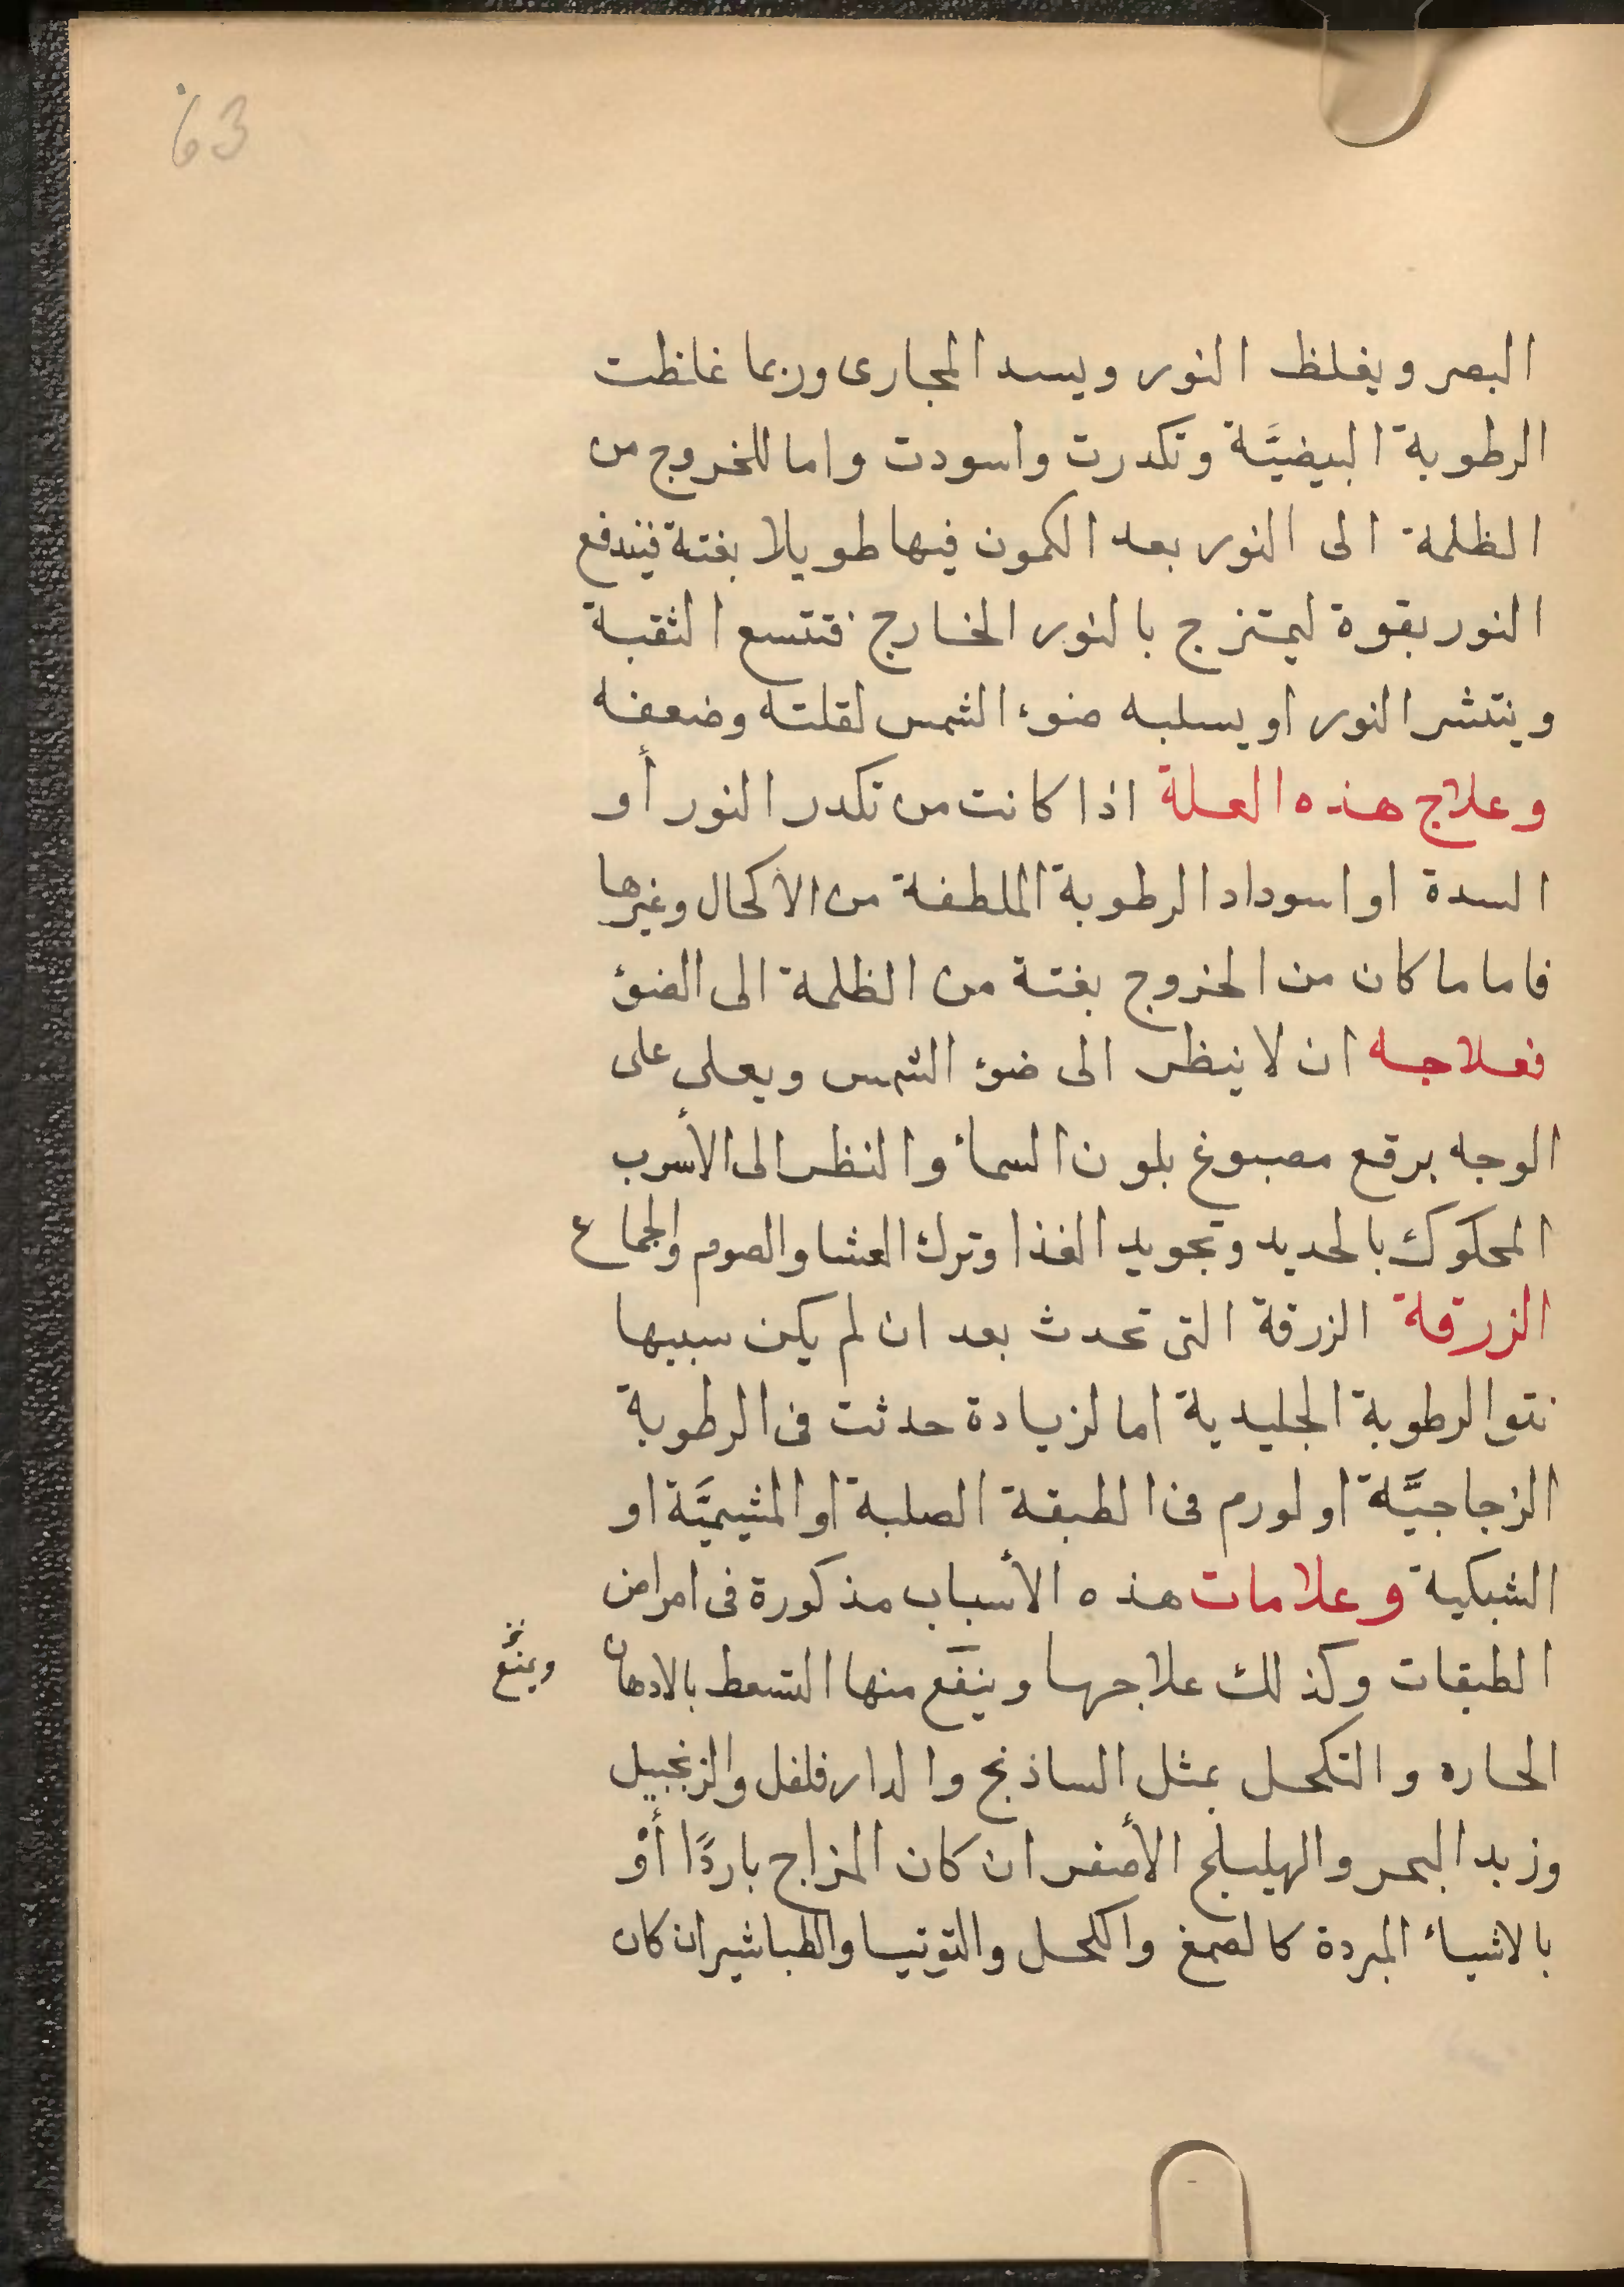 63
البصر ويغلظ النور ويسد المجارى وربما غلظت
الرطوبة البيضيَّة وتكدرت واسودت واما للخروج من
الظلمة الى النور بعد الكمون فيها طويلا بغتة فيندفع
النور بقوة ليمتزج بالنور الخارج فتتسع الثقبة
وينتشر النور او يسلبه ضوء الشمس لقلته وضعفه
وعلاج هذه العلة اذا كانت من تكدر النور أو
السدة او اسوداد الرطوبة الملطفة من الاكحال وغيرها
فاما ما كان من الخروج بغتة من الظلمة الى الضوء
فعلاجه ان لا ينظر الى ضوء الشمس ويعلى على
الوجه برقع مصبوغ بلون السماء والنظر الى الأسرب
المحكوك بالحديد وتجويد الغذا وترك العشا والصوم والجماع
الزرقة الزرقة التى تحدث بعد ان لم يكن سببها
نتو الرطوبة الجليدية اما لزيادة حدثت فى الرطوبة
الزجاجيَّة او لورم فى الطبقة الصلبة او المشيميَّة او
الشبكية وعلامات هذه الأسباب مذكورة فى امراض
الطبقات وكذلك علاجها وينفع منها التسعط بالادهان
ويمنع
الحاره والتكحل بمثل الساذنج والدار فلفل والزنجبيل
وزبد البحر والهليلج الأصفر ان كان المزاج باردًا أوْ
بالاشياء المبردة كالصمغ والكحل والتوتيا والطباشير ان كان